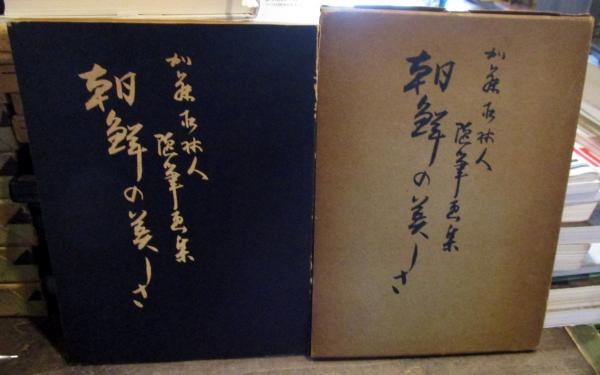 加藤松林人
随筆画集
朝鮮の美しさ
加藤松林人
随筆画集
朝鮮の美しさ